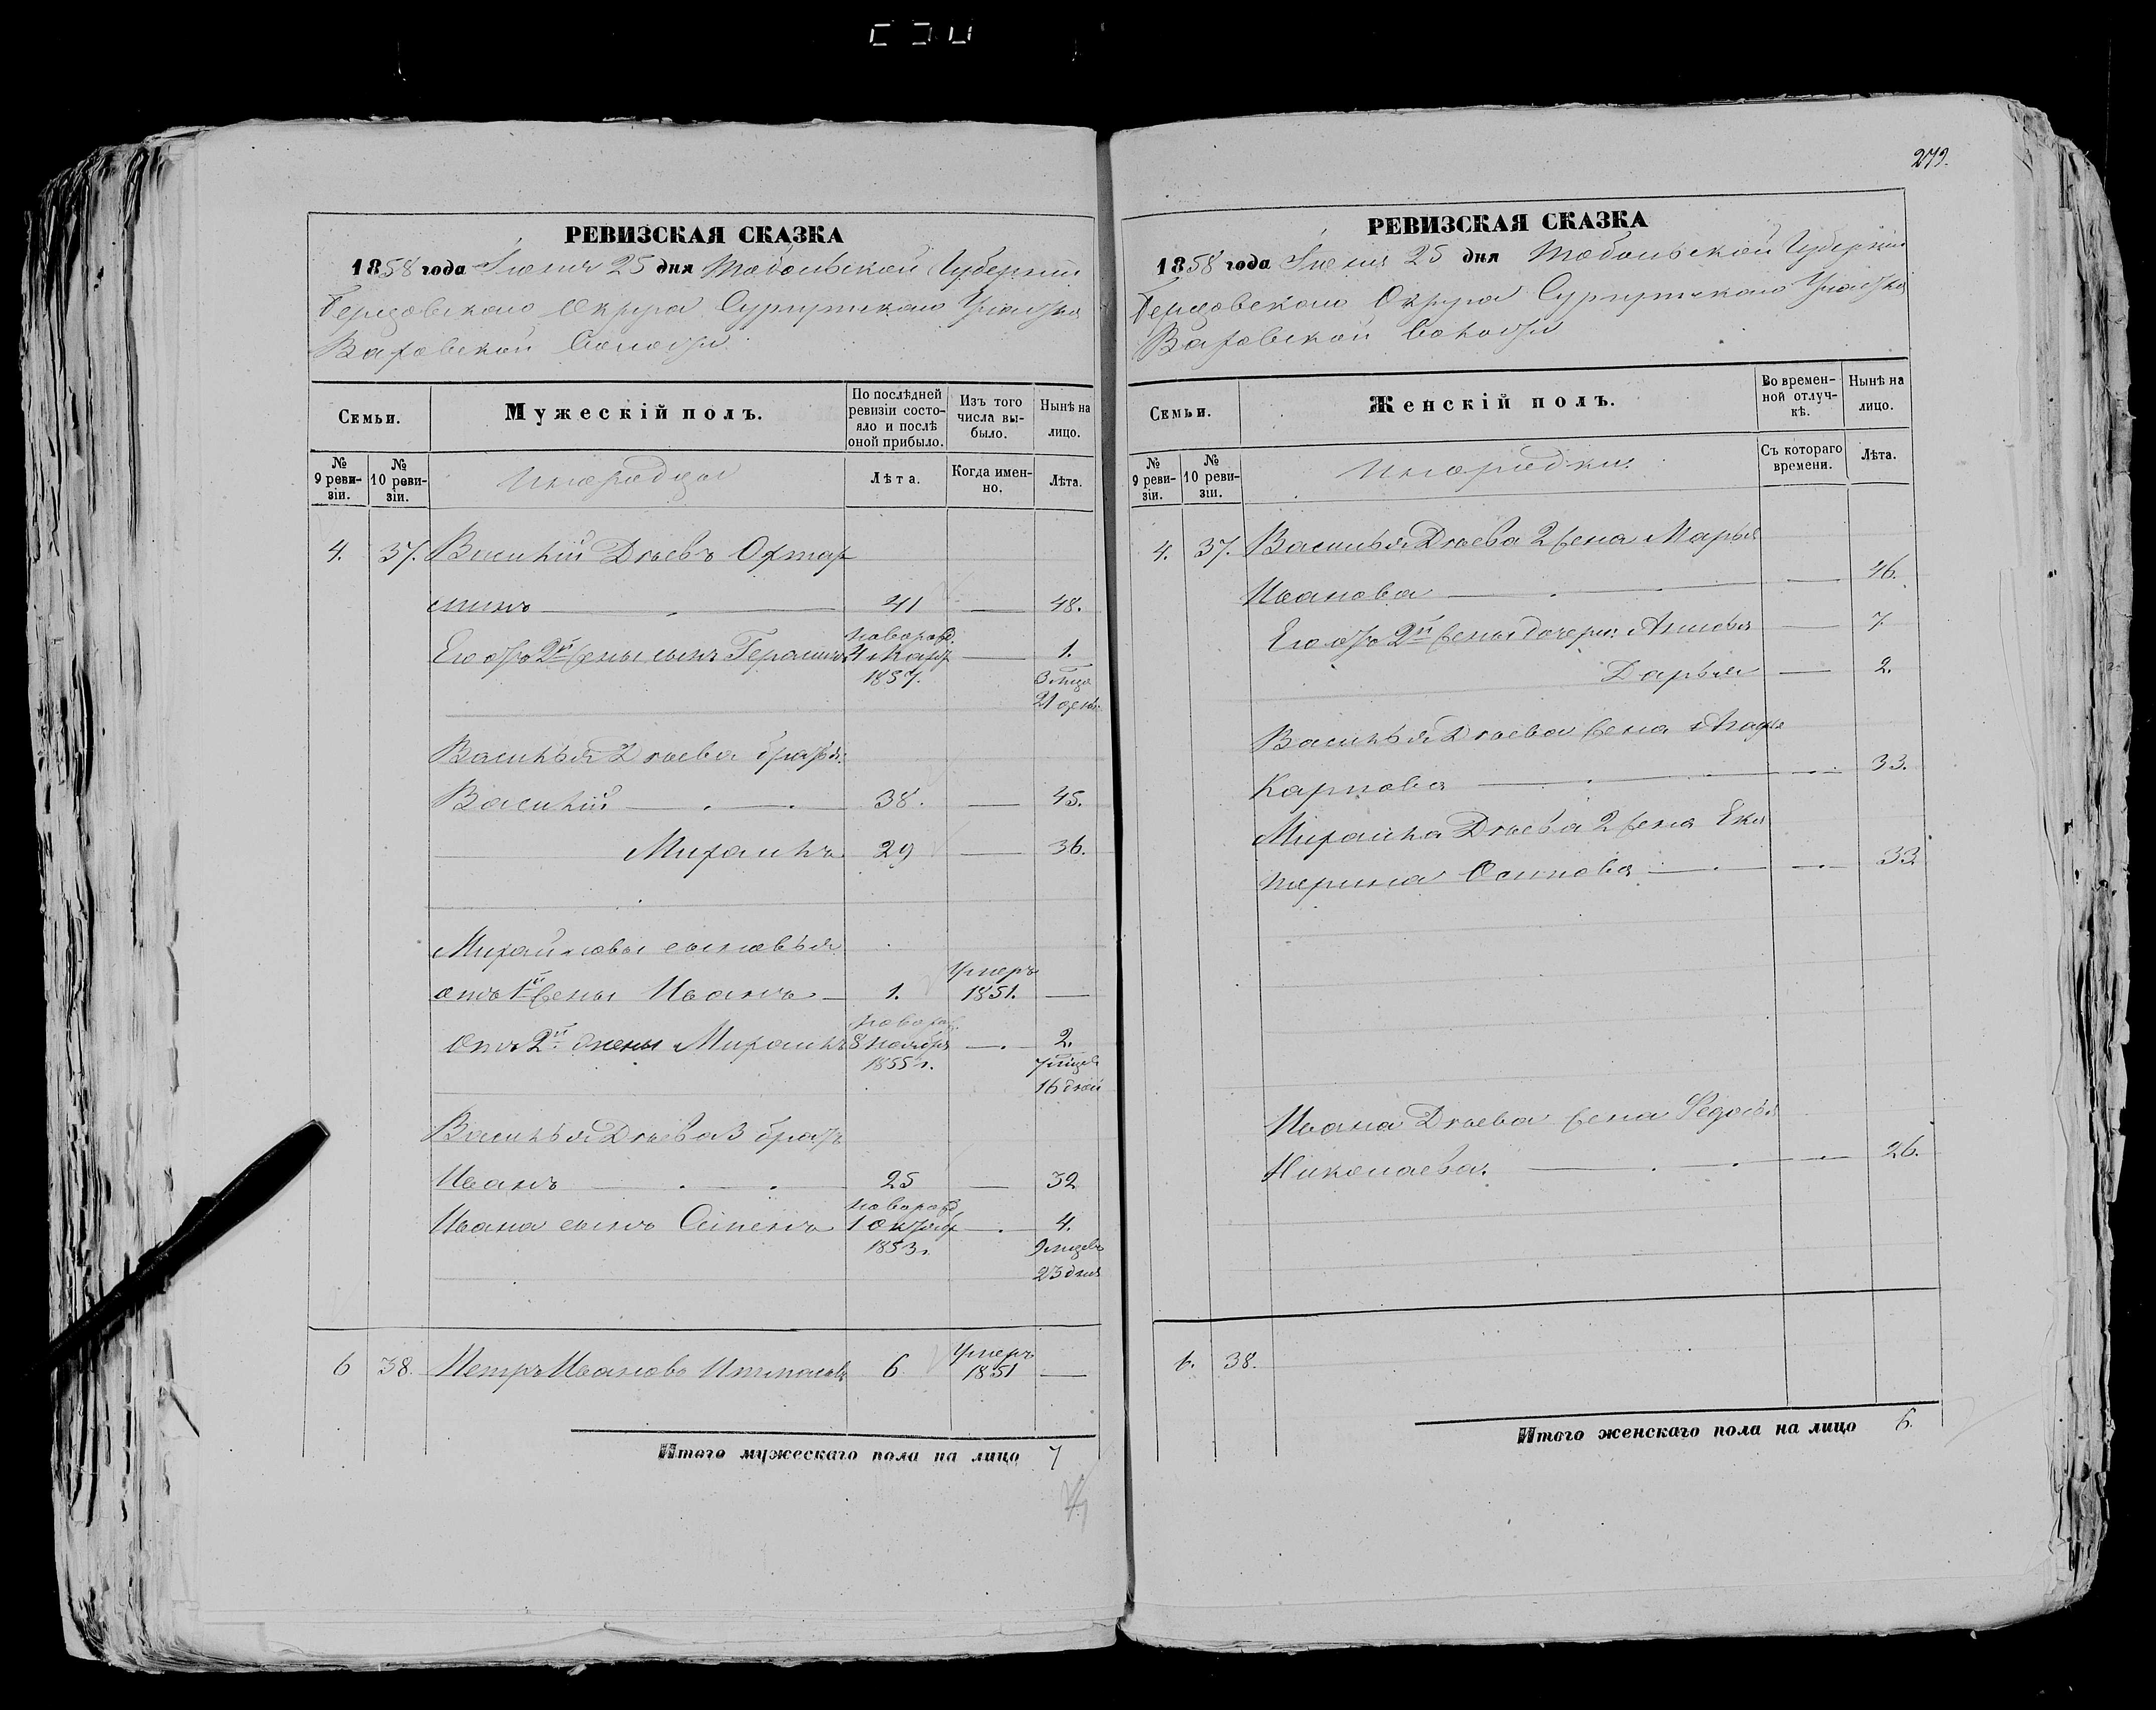 279.
РЕВИЗСКАЯ СКАЗКА
1858 года Іюня 25 дня Тобольской Губерніи
Березовскаго Округа Сургутскаго Участка
Ваховской Волости
Семьи.
Мужескій полъ.
По послѣдней ревизіи состояло и послѣ оной прибыло.
Изъ того числа выбыло.
Нынѣ на лицо.
№ 9 ревизіи.
№ 10 ревизіи.
Инородцы
Лѣта.
Когда именно.
Лѣта.
4. 37. Василій Дѣевъ
41 — 48.
Его отъ 2й жены сынъ Герасимъ новорожд. 4 Мар. 1857. — 1. 3 мца 21 день
Василья Дѣева братья:
Василій — 38. — 45.
Михаилъ 29 — 36.
Михайловы сыновья
отъ 1й жены Иванъ — 1. Умеръ 1851. —
отъ 2й жены Михаилъ новорож. 8 Ноября 1855 г. — 2. 7 мцев 16 дней
Василья Дѣева 3 братъ
Иванъ — 25 — 32
Ивана сынъ новорожд. 1 Октяб. 1853 г. — 4. 9 мцевъ 23 дня
6 38. Петръ Ивановъ 6 Умеръ 1851 —
Итого мужескаго пола на лицо 7
РЕВИЗСКАЯ СКАЗКА
1858 года Іюня 25 дня Тобольской Губерніи
Березовскаго Округа Сургутскаго Участка
Ваховской Волости
Семьи.
Женскій полъ.
Во временной отлучкѣ.
Нынѣ на лицо.
№ 9 ревизіи.
№ 10 ревизіи.
Инородки.
Съ котораго времени.
Лѣта.
4. 37. Василья Дѣева 2 жена Марья
Иванова — 46.
Его отъ 2й жены дочери: — 7
Дарья — 2.
Василья Дѣева жена
Карпова — 33.
Михаила Дѣева 2 жена Ека
терина Осипова — 33
Ивана Дѣева жена Федосья
Николаева. — 26.
6. 38.
Итого женскаго пола на лицо 6.